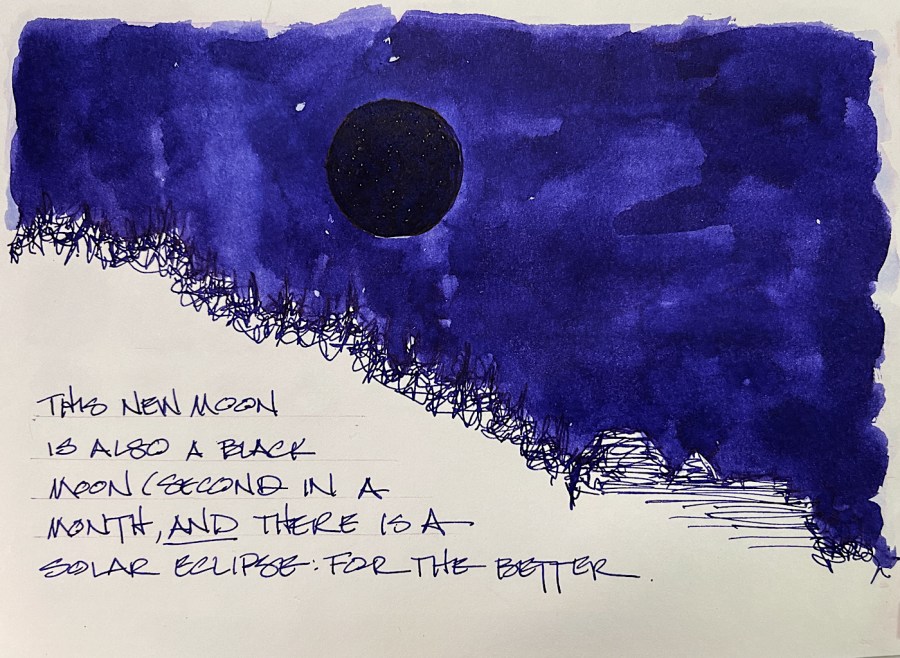 THIS NEW MOON
IS ALSO A BLACK
MOON (SECOND IN A
MONTH, AND THERE IS A
SOLAR ECLIPSE: FOR THE BETTER.